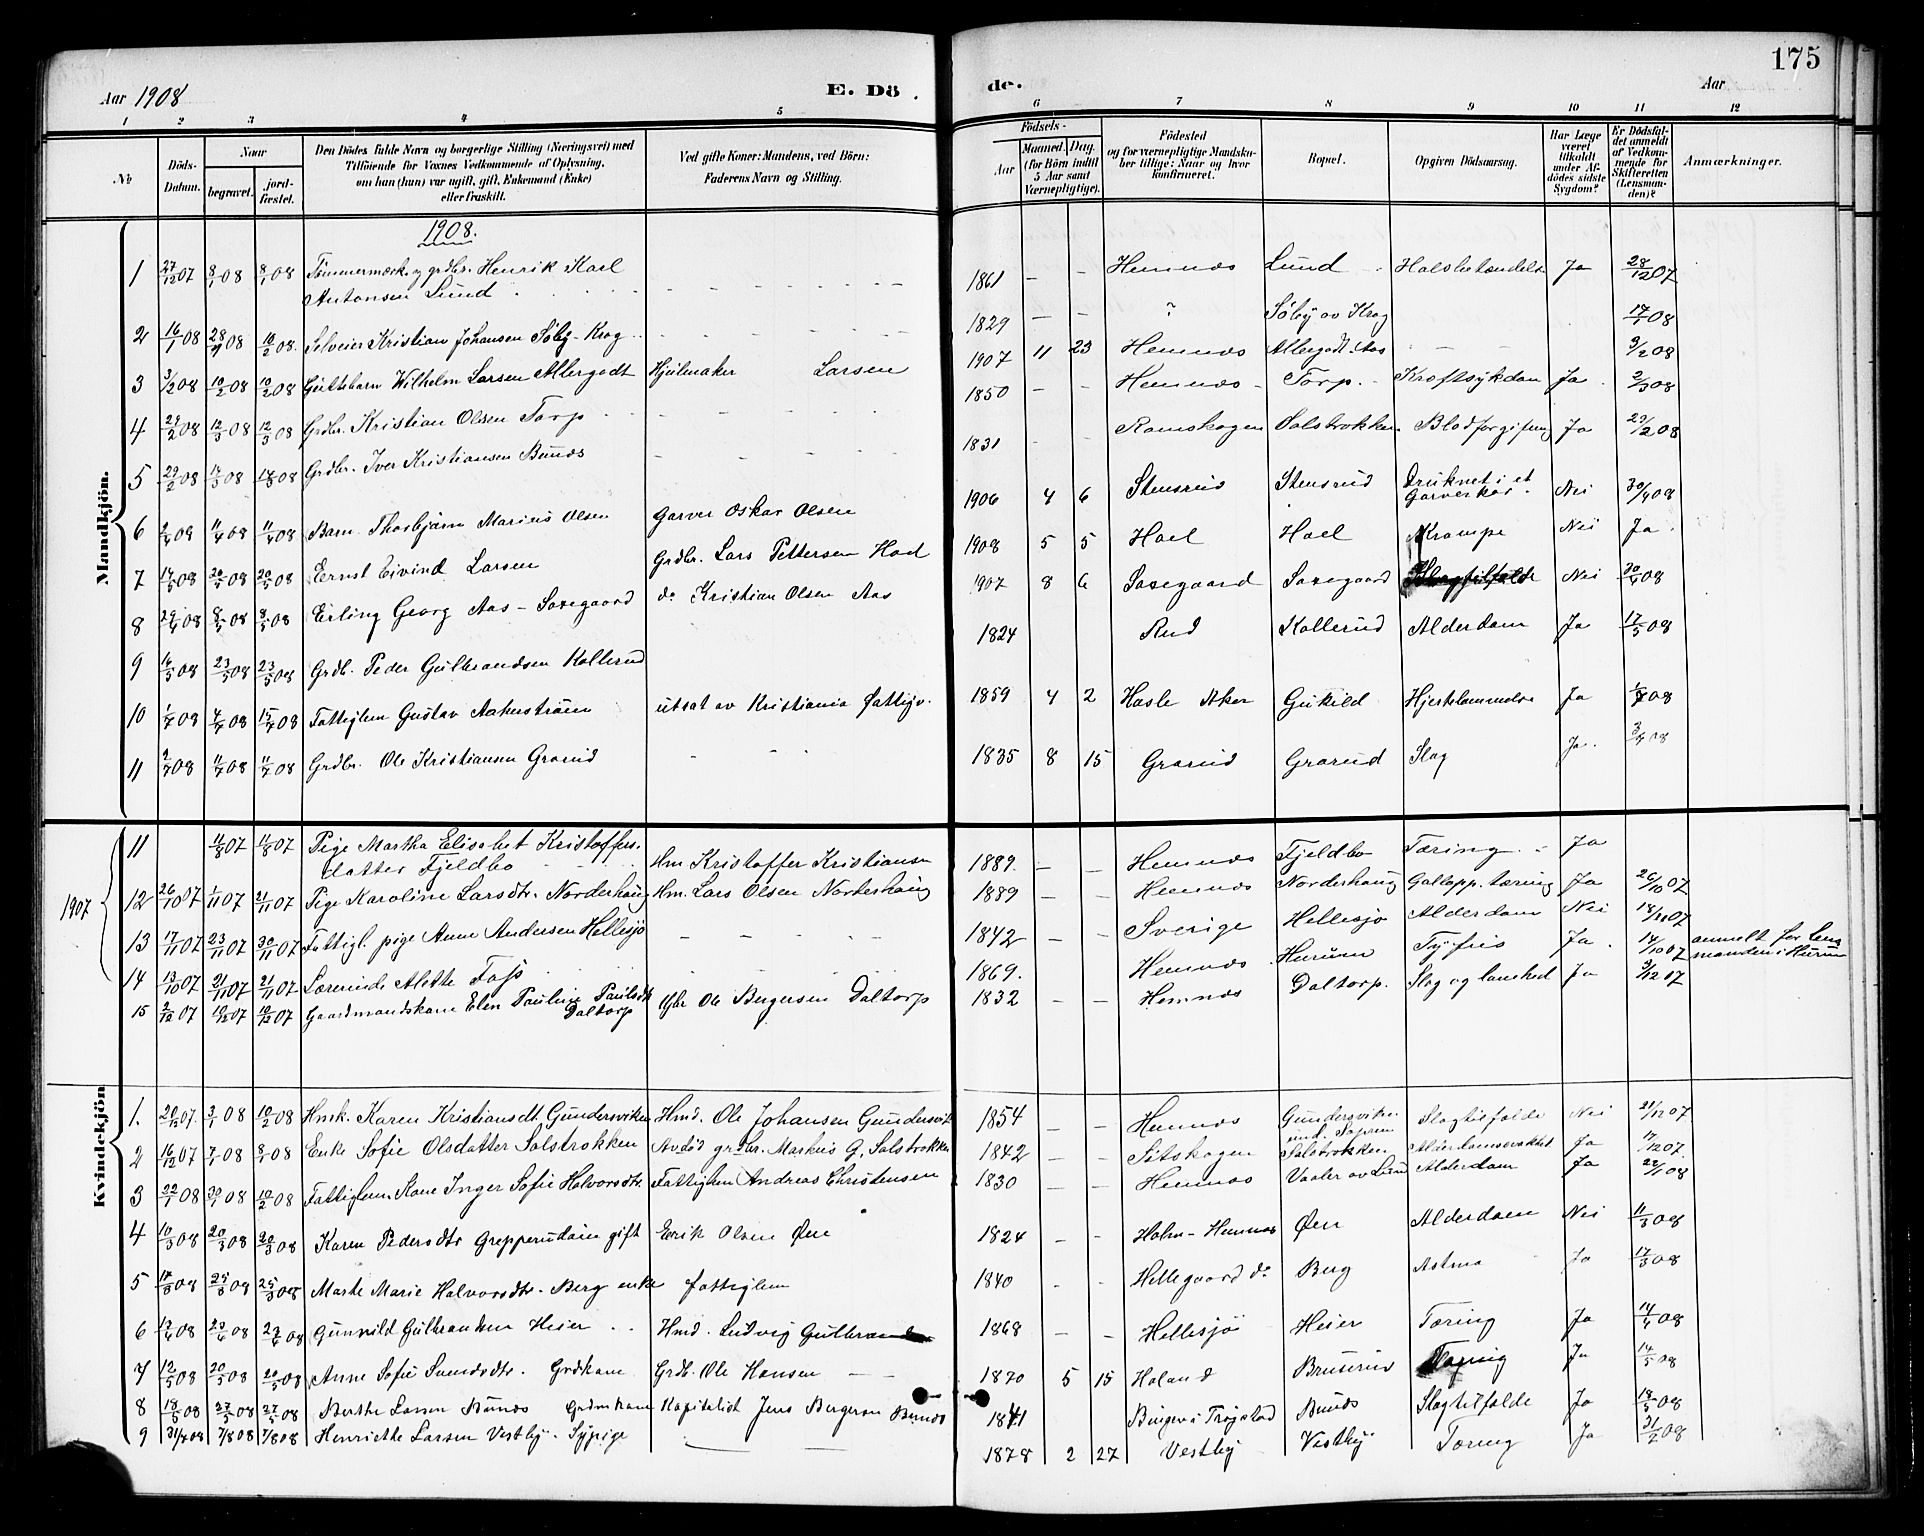 175
Aar 1908
E. Dö
de.
Aar
1 2 3 4 5 6 7 8 9 10 11 12
№
Döds-Datum.
Naar
begravet.
jordfæstet.
Den Dödes fulde Navn og borgerlige Stilling (Næringsvei) med
Tilföiende for Voxnes Vedkommende af Oplysning,
om han (hun) var ugift, gift, Enkemand (Enke)
eller fraskilt.
Ved gifte Koner: Mandens, ved Börn:
Faderens Navn og Stilling.
Födsels-
Aar
Maaned. Dag.
(for Börn indtil
5 Aar samt
Værnepligtige).
Födested
og for værnepligtige Mandskaber tillige: Naar og hvor
konfirmeret.
Bopæl.
Opgiven Dödsaarsag.
Har Læge
været
tilkaldt
under Afdödes sidste
Sygdom?
Er Dödsfaldet anmeldt
af Vedkommende for
Skifteretten
(Lensmanden)?
Anmærkninger.
Mandkjön.
1908.
1 27/12 07 8/1 08 8/1 08 Tømmermærk. og grdbr. Henrik Karl 1861 — - Hemnæs Lund Halsbetændelse Ja 28/12 07
Antonsen Lund
2 16/1 08 28/1 08 16/2 08 Selveier Kristian Johansen Søby-Krog 1829 — - ? Søby av Krog 17/1 08
3 3/2 08 10/2 08 10/2 08 Gültebarn Wilhelm Larsen Allergodt Hjulmaker Larsen 1907 11 23 Hemnæs Allergodt Aas 3/2 08
4 29/2 08 12/3 08 12/3 08 Grdbr. Kristian Olsen Torp 1850 - - Hemnæs Torp. Kræftsykdom Ja 2/3 08
5 29/2 08 17/3 08 17/3 08 Grdbr. Iver Kristiansen Bunæs 1831 - - Romskogen Salstrokken Blodforgiftning Ja 29/2 08
6 2/4 08 11/4 08 11/4 08 Barn Thorbjørn Marius Olsen Garver Oskar Olsen 1906 4 6 Stensrud Stensrud Druknet i et Garverkar. Nei 30/4 08
7 14/5 08 20/5 08 20/5 08 Ernst Eivind Larsen Grdbr. Lars Pettersen Hael 1908 5 5 Hael Hael Krampe Nei Ja.
8 29/4 08 8/5 08 8/5 08 Erling Georg Aas - Saxegaard do Kristian Olsen Aas 1907 8 6 Saxegaard Saxegaard Slagtilfælde Nei 20/4 08
9 16/5 08 23/5 08 23/5 08 Grdb. Peder Gulbrandsen Kallerud 1824 Rud Kallerud Alderdom Ja 17/5 08
10 1/7 08 4/7 08 15/7 08 Fattiglem Gustav Aakerstrøm utsat av Kristiania Fattigv. 1859 4 2 Hasle Aker Gukild Hjertelammelse Ja 1/7 08
11 2/7 08 11/7 08 11/7 08 Grdbr. Ole Kristiansen Grorud 1835 8 15 Grorud Grorud Slag Ja. 3/7 08
1907
11 11/8 07 11/8 07 Pige Martha Elisabet Kristoffers- Hm Kristoffer Kristiansen 1889. — — Hemnæs Fjeldbo Tæring Ja
datter Fjeldbo
12 26/10 07 1/11 07 21/11 07 Pige Karoline Larsdtr. Norderhaug Hm. Lars Olsen Norderhaug 1889 - - Hemnæs Norderhaug Gallopp. tæring Ja 26/10 07
13 17/11 07 23/11 07 30/11 07 Fattigl. pige Anne Andersen Hellesjø 1842 — - Sverige Hellesjø Alderdom Nei 18/11 07
14 13/10 07 21/11 07 21/11 07 Lærerinde Alette Foss 1869. Hemnæs Hurum Tyfus Ja 14/10 07 anmelt for lensmanden i Hurum
15 2/12 07 10/12 07 10/12 07 Gaardmandskone Elen Pauline Paulsdt. Daltorp Gbr Ole Bergersen Daltorp 1832 — - Hemnæs Daltorp. Slag og lamhed Ja 3/12 07
Kvindekjön
1. 20/12 07. 3/1 08 10/2 08 Hmk. Karen Kristiansdt Gundersviken Hmd. Ole Johansen Gundersvik 1854 — - Hemnæs Gundersviken Slagtilfælde Nei 21/12 07
2 16/12 07 7/1 08 8/1 08 Enke Sofie Olsdatter Salstrokken Avdød grdbr. Markus G. Salstrokken 1842 — — Setskogen Salstrokken Alderdomssvakhet Ja 17/12 07.
3 22/1 08 30/1 08 10/2 08 Fattiglem Kone Inger Sofie Halvorsdtr. Fattiglem Andreas Christensen 1830 — — Hemnæs Vaaler av Lund Alderdom Ja 22/1 08
4 10/3 08 20/3 08 20/3 08 Karen Pedersdtr Grepperudøien gift Erik Olsen Øen 1824 — - Holm - Hemnæs Øen Alderdom Nei 11/3 08
5 17/3 08 25/3 08 25/3 08 Marte Marie Halvorsdtr. Berg enke fattiglem 1840 - - Hellegaard do Berg Astma Ja 17/3 08
6 13/4 08 23/4 08 23/4 08 Gunnild Gulbrandsen Heier Hmd. Ludvig Gulbrandsen 1868 — - Hellesjø Heier Tæring Ja 14/4 08
7 12/5 08 20/5 08 20/5 08 Anne Sofie Svendsdtr. Grdkone Grdb. Ole Hansen — — 1870 5 15 Høland Bruserud Tæring Ja 14/5 08
8 18/5 08 27/5 08 27/5 08 Berthe Larsen Bunæs Grdmkone Kapitalist Jens Bergersen Bunæs 1841 i Trøgstad Bunæs Slagtilfælde Ja 18/5 08
9 31/7 08 7/8 08 7/8 08 Henriette Larsen Vestby. Sypige 1878 2 27 Vestby Vestby Tæring Ja 31/2 08